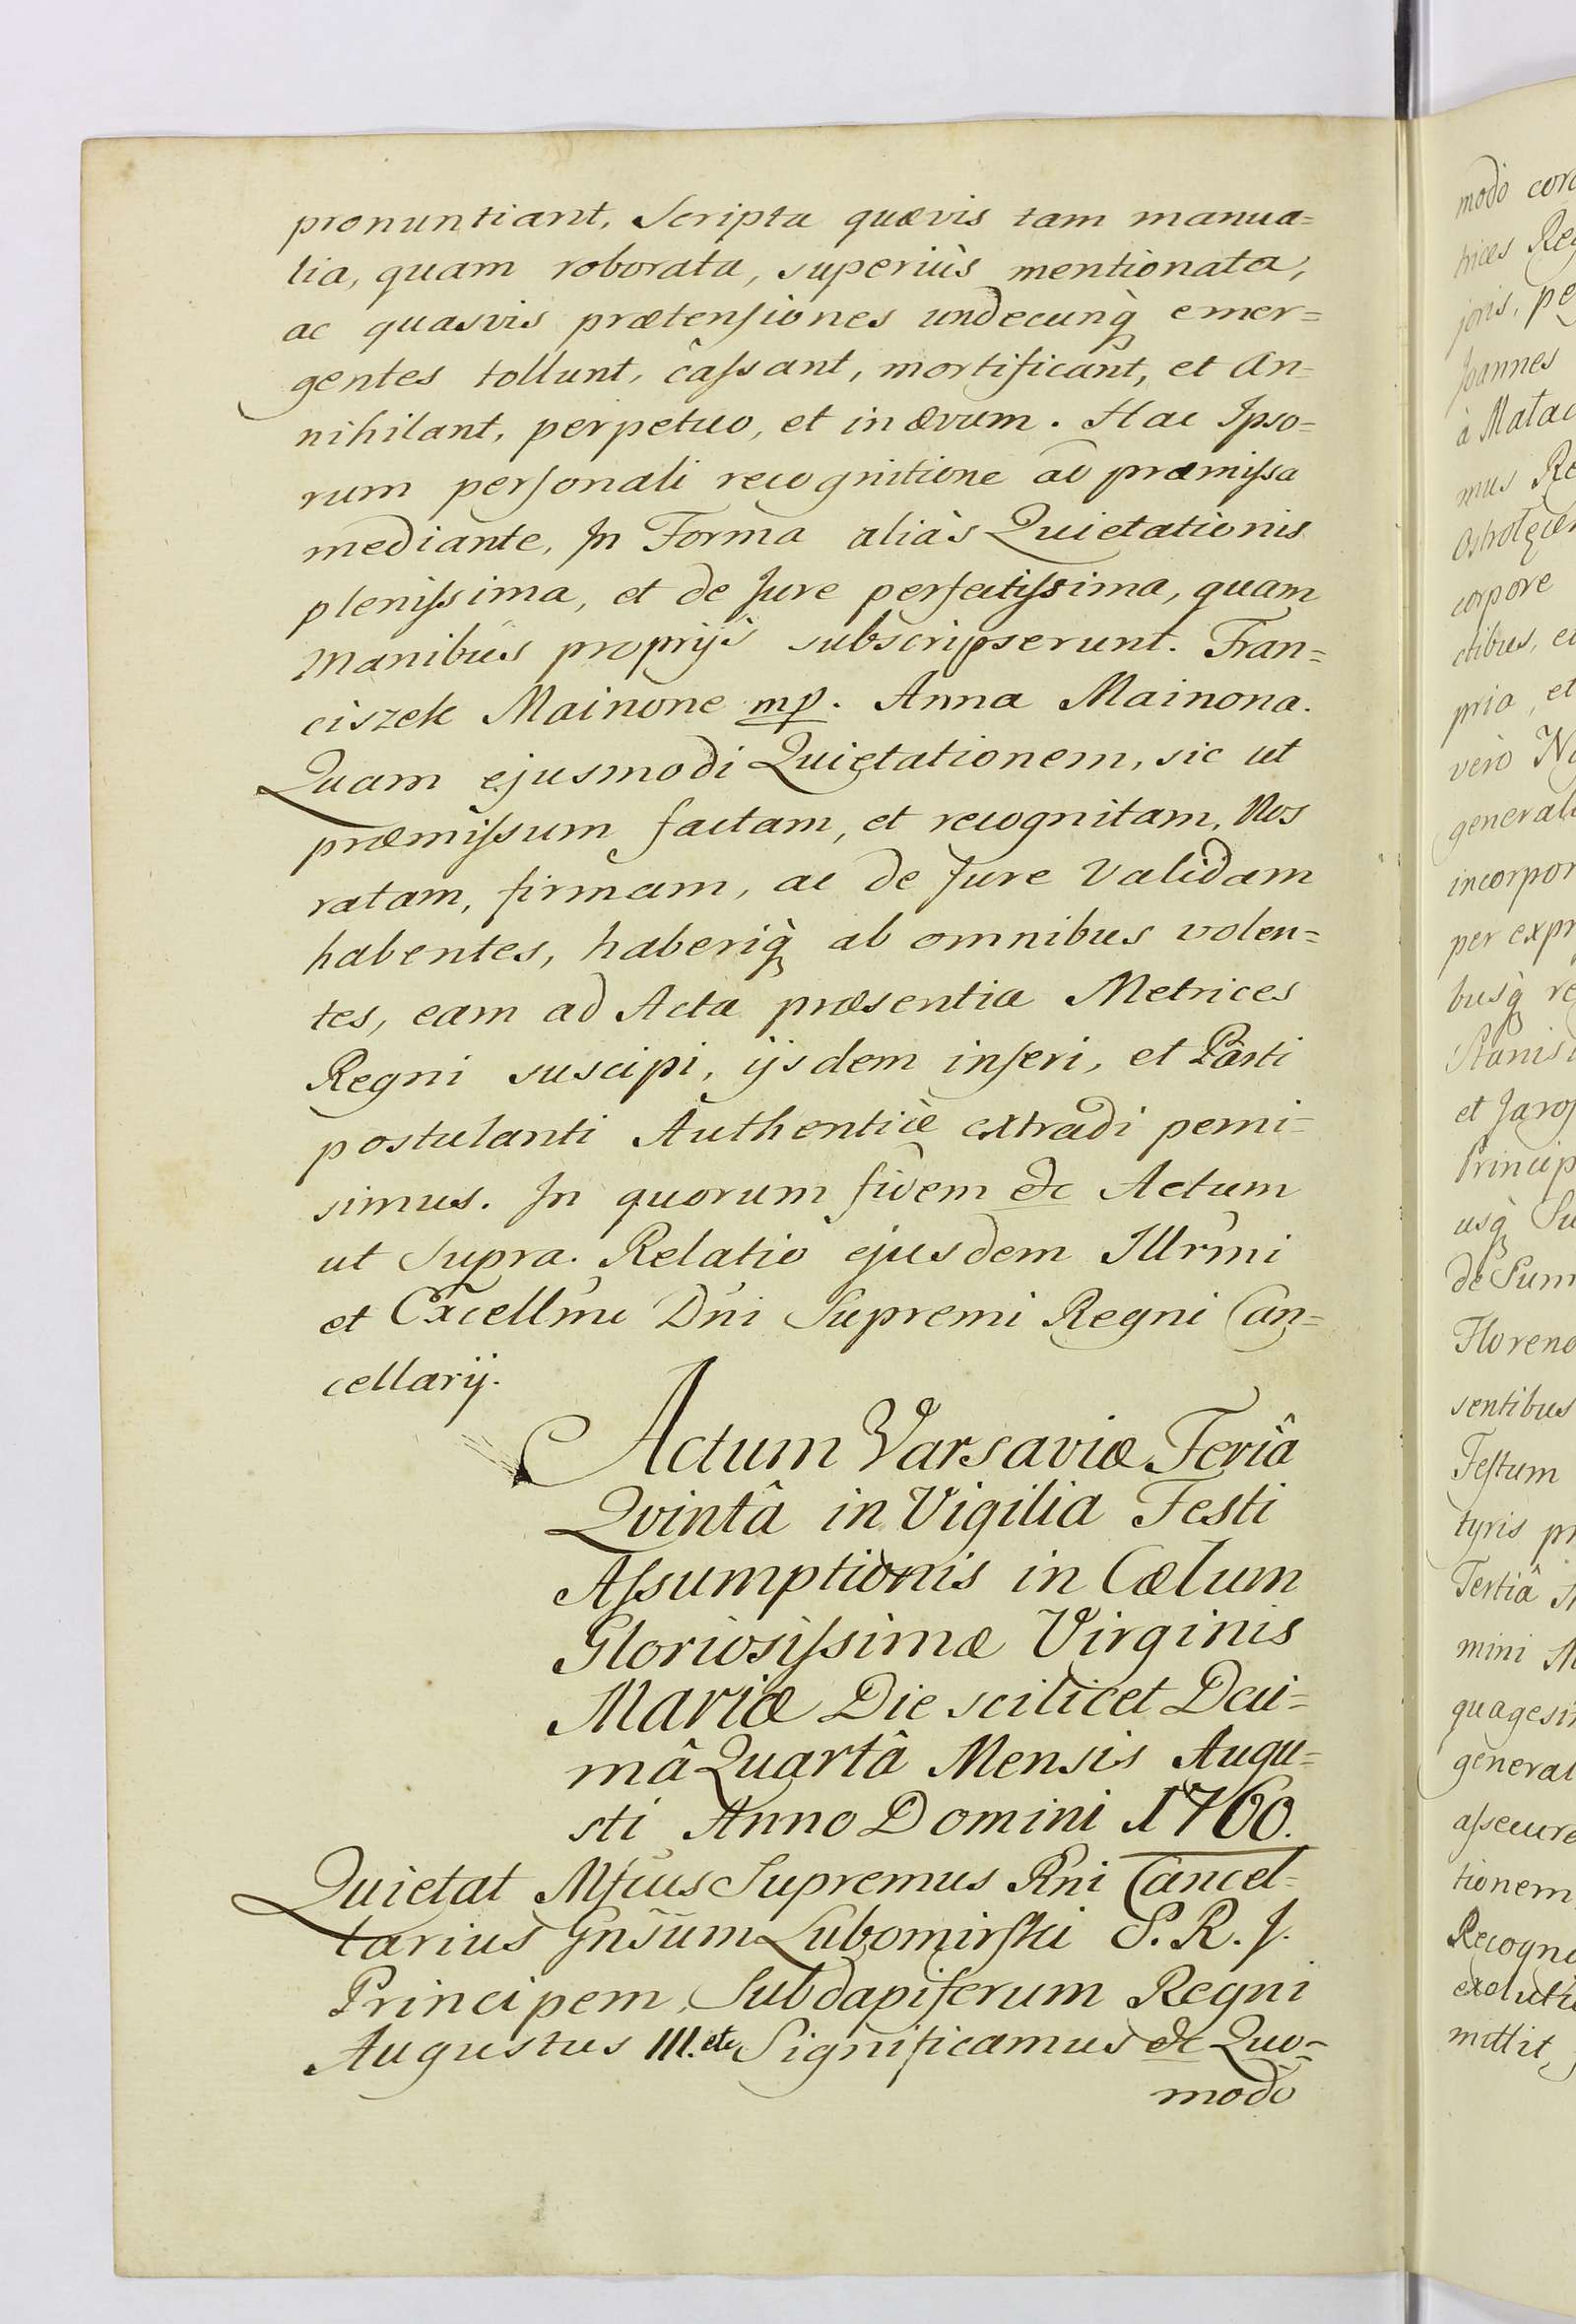 pronuntiant, Scripta quævis tam manua=
lia, quam roborata, superiùs mentionata,
ac quasvis prætensiones undecunq̀ emer=
gentes tollunt, cassant, mortificant, et An=
nihilant, perpetuo, et in ævum. Hac Ipso=
rum personali recognitione ad præmissa
mediante, In Forma aliàs Quietationis
plenissima, et de Jure perfectissima, quam
Manibus proprijs subscripserunt. Fran=
ciszek Mainone mp. Anna Mainona.
Quam ejusmodi Quietationem, sic ut
præmissum factam, et recognitam, Nos
ratam, firmam, ac de Jure Validam
habentes, haberiq̀ ab omnibus volen=
tes, eam ad Acta præsentia Metrices
Regni suscipi, ijsdem inseri, et Parti
postulanti Authenticè extradi permi=
simus. In quorum fidem &c Actum
ut Supra. Relatio ejusdem Illrmi
et Excellmi Dni Supremi Regni Can=
cellarij.
Actum Varsaviæ Feriâ
Qvintâ in Vigilia Festi
Assumptionis in Cælum
Gloriosissimæ Virginis
Mariæ Die scilicet Deci=
mâ Quartâ Mensis Augu=
sti Anno Domini 1760.
Quietat Mfcus Supremus Rni Cancel=
larius Gnsum Lubomirski S. R. J.
Principem, Subdapiferum Regni
Augustus III. etc Significamus &c Quo=
modo
modò
trices
joris,
Joannes
à
mus
corpore
ctibus,
pria, et
verò
per
busq̀
Principi
usq̀
de
sentibus
Festum
tyris
Tertiâ
mini
tionem
mittit,